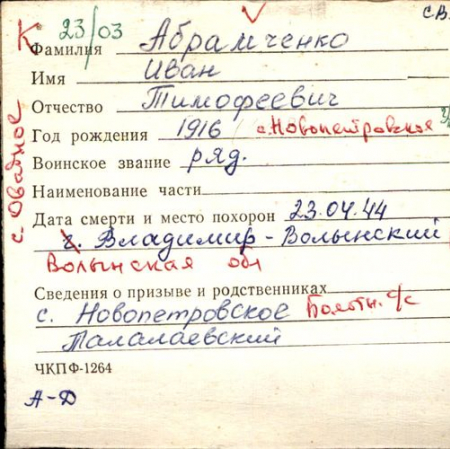 К 23/03 св.
Фамилия Абрамченко
Имя Иван
Отчество Тимофеевич
Год рождения 1916 с. Новопетровское
Воинское звание ряд.
Наименование части
Дата смерти и место похорон 23.04.44
г. Владимир-Волынский
Волынская обл
Сведения о призыве и родственниках
с. Новопетровское Болотн. с/с
Талалаевский
ЧКПФ-1264
А-Д
с. Овадное